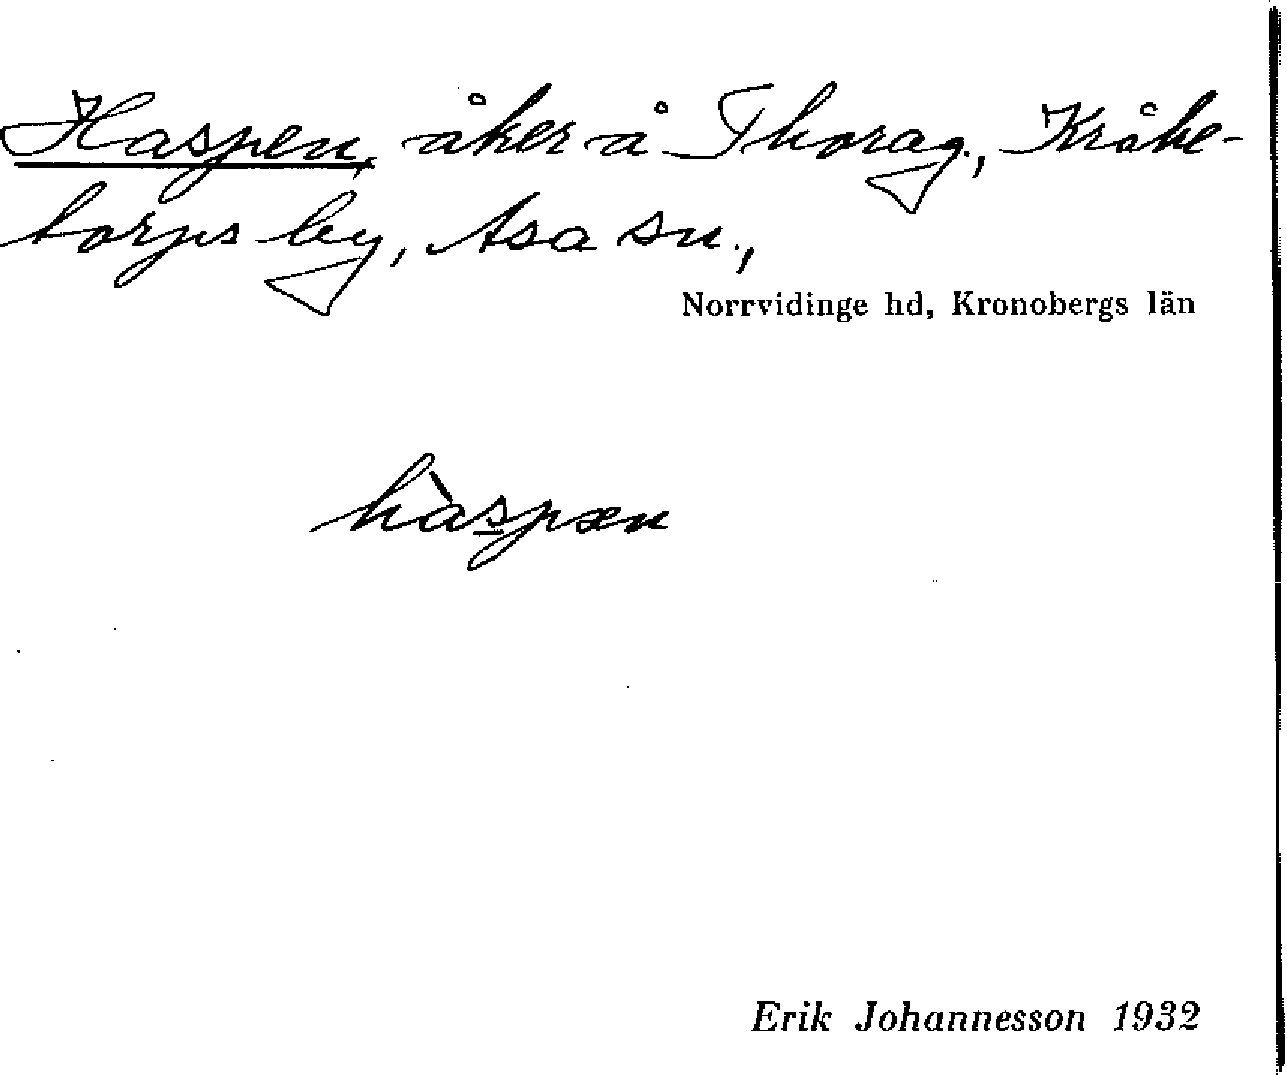 Haspen, åker å Thorag., Kråke-
torps by, Asa sn.,
Norrvidinge hd, Kronobergs län
hàspæn
Erik Johannesson 1932